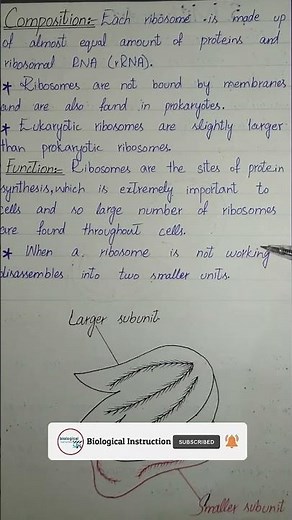 Composition:- Each ribosome is made up
of almost equal amount of proteins and
ribosomal RNA (rRNA).
* Ribosomes are not bound by membranes
and are also found in prokaryotes.
* Eukaryotic ribosomes are slightly larger
than prokaryotic ribosomes.
Function:- Ribosomes are the sites of protein
synthesis, which is extremely important to
cells and so large number of ribosomes
are found throughout cells.
* When a ribosome is not working
disassembles into two smaller units.
Larger subunit
Biological Instruction SUBSCRIBED
Smaller subunit